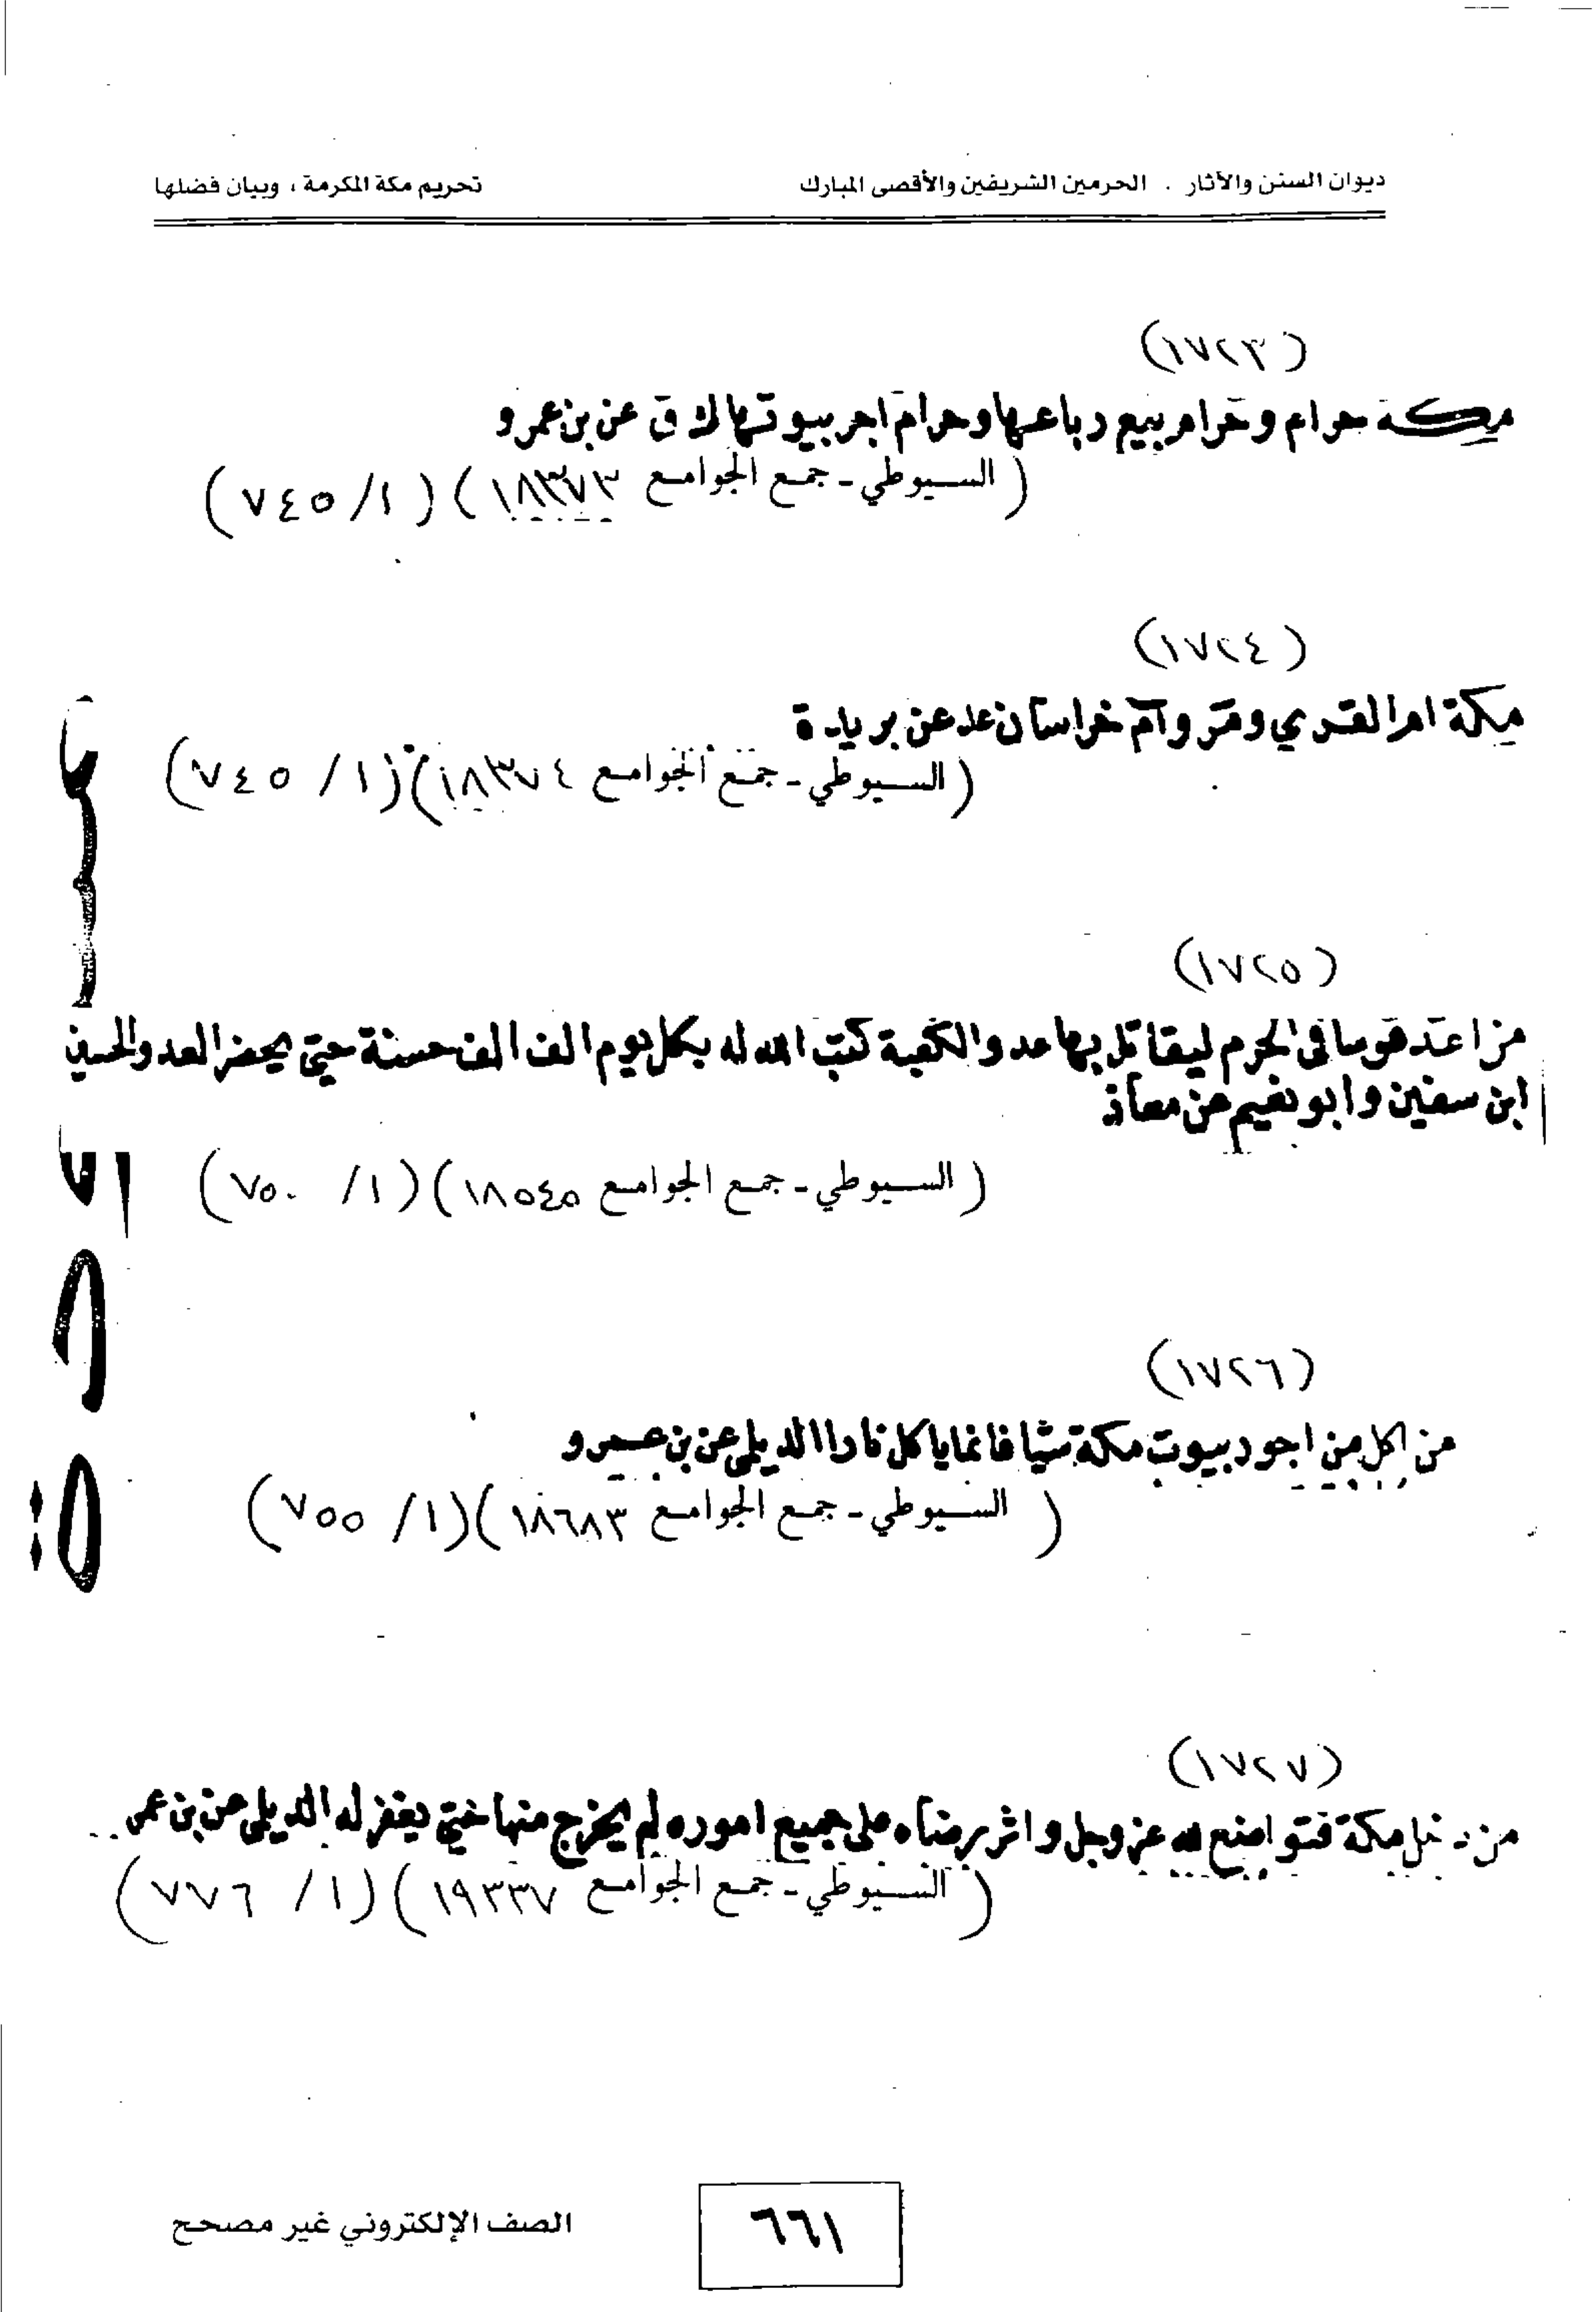 ديوان السنن والآثار . الحرمين الشريفين والأقصى المبارك
تحريم مكة المكرمة ، وبيان فضلها
(١٧٢٣)
مكة حرام وحرام بيع رباعها وحرام اجر بيوتها ك ق عن بن عمرو
(السيوطي - جمع الجوامع ١٨٣٧٣) (١/ ٧٤٥)
(١٧٢٤)
مكة ام القري ومرو ام خراسان عد عن بريدة
(السيوطي - جمع الجوامع ١٨٣٧٤) (١/ ٧٤٥)
(١٧٢٥)
من اعتد قوسا في الحرم ليقاتل بها عدو الكعبة كتب الله له بكل يوم الف الف حسنة حتى يحضر العدو الحسن
ابن سفين وابو نعيم عن معاذ
(السيوطي - جمع الجوامع ١٨٥٤٥) (١/ ٧٥٠)
(١٧٢٦)
من اكل من اجور بيوت مكة شيا فانما ياكل نارا الديلمى عن بن عمرو
(السيوطي - جمع الجوامع ١٨٦٨٣) (١/ ٧٥٥)
(١٧٢٧)
من دخل مكة فتواضع لله عز وجل واثر رضاه على جميع اموره لم يخرج منها حتى يغفر له الديلمى عن بن عمر
(السيوطي - جمع الجوامع ١٩٣٣٧) (١/ ٧٧٦)
٦٦١
الصف الإلكتروني غير مصحح